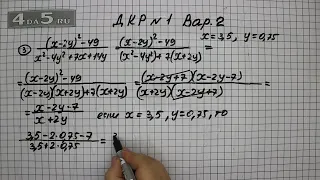 4DA5.RU
Д.К.Р №1 Вар. 2
③ (x-2y)²-49 / x²-4y²+7x+14y (x-2y)²-49 / (x²-4y²)+7(x+2y) = x=3,5, y=0,75
= (x-2y)²-49 / (x-2y)(x+2y)+7(x+2y) = (x-2y+7)(x-2y-7) / (x+2y)(x-2y+7) =
= x-2y-7 / x+2y если x=3,5, y=0,75, то
3,5-2·0,75-7 / 3,5+2·0,75 =